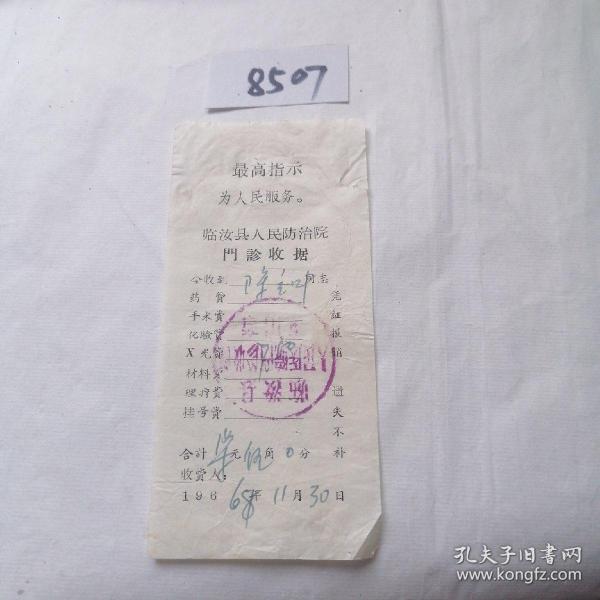 8507
最高指示
为人民服务。
临汝县人民防治院
門診收据
今收到 同志
药費
手术費
化驗費
X光費
材料費
理疗費
挂号費
凭証报銷
遺失不补
合計 元 伍角0分
收費人:
196 年11月30日
临汝县
孔夫子旧书网
www.kongfz.com